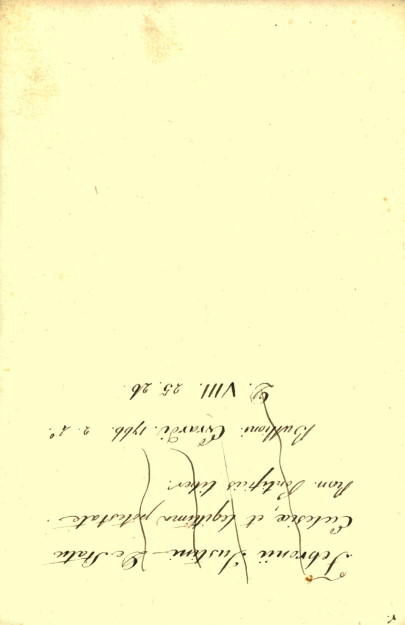 Febronii Justini – De Statu
Ecclesiæ, et legitima potestate
Rom. Pontificis liber.
Bullioni. Evrardi. 1766. 2. 4º.
D. VIII. 25. 26.